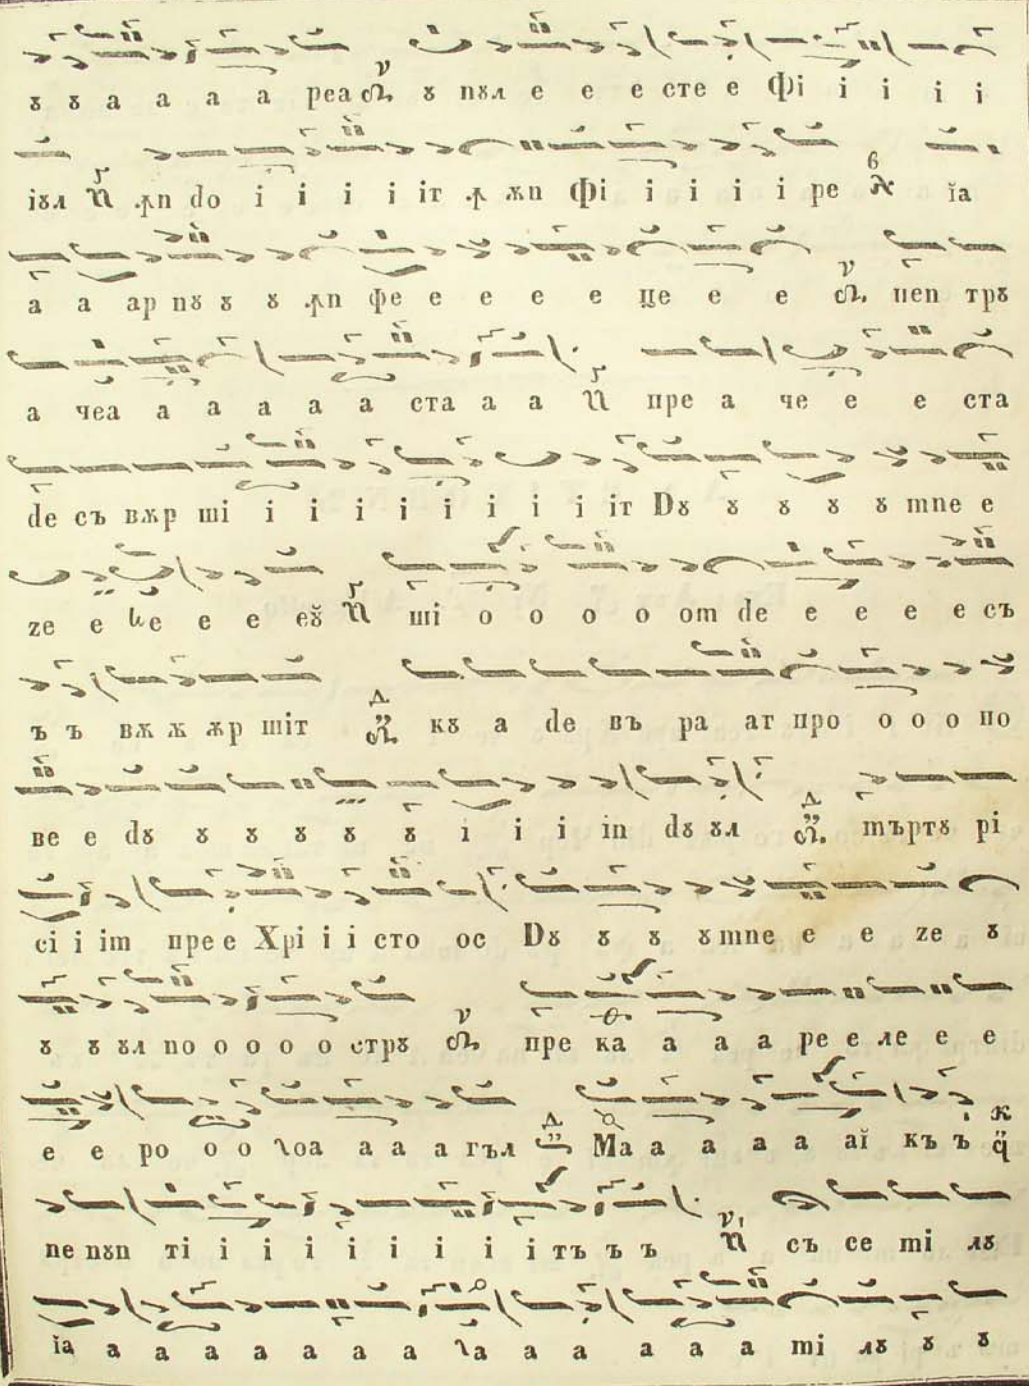 ꙋ ꙋ а а а а реа ꙋ пꙋл е е е сте е Фі і і і і
іꙋл ꙟn dо і і і і іт ꙟ ѫn Фі і і і і ре ĭа
а а ар пꙋ ꙋ ꙋ ꙟn фе е е е е це е е пеn трꙋ
а чеа а а а а а ста а а пре а че е е ста
dе съ вѫр ші і і і і і і і і іт Dꙋ ꙋ ꙋ ꙋ ꙋ mne е
zе е ле е е еꙋ̆ ші о о о о оm dе е е е е съ
ъ ъ вѫ ѫ ѫр шіт кꙋ а dе въ ра аг про о о о по
ве е dꙋ ꙋ ꙋ ꙋ ꙋ ꙋ і і і іn dꙋ ꙋл mъртꙋ рі
сі і іm пре е Хрі і і сто ос Dꙋ ꙋ ꙋ ꙋ mne е е zе ꙋ
ꙋ ꙋ ꙋл по о о о о стрꙋ пре ка а а а ре е ле е е
е е ро о о лоа а а а гъл Ма а а а а аĭ къ ъ
пе пꙋn ті і і і і і і і і тъ ъ ъ съ се mі лꙋ
ĭа а а а а а а а ла а а а а а mі лꙋ ꙋ ꙋ